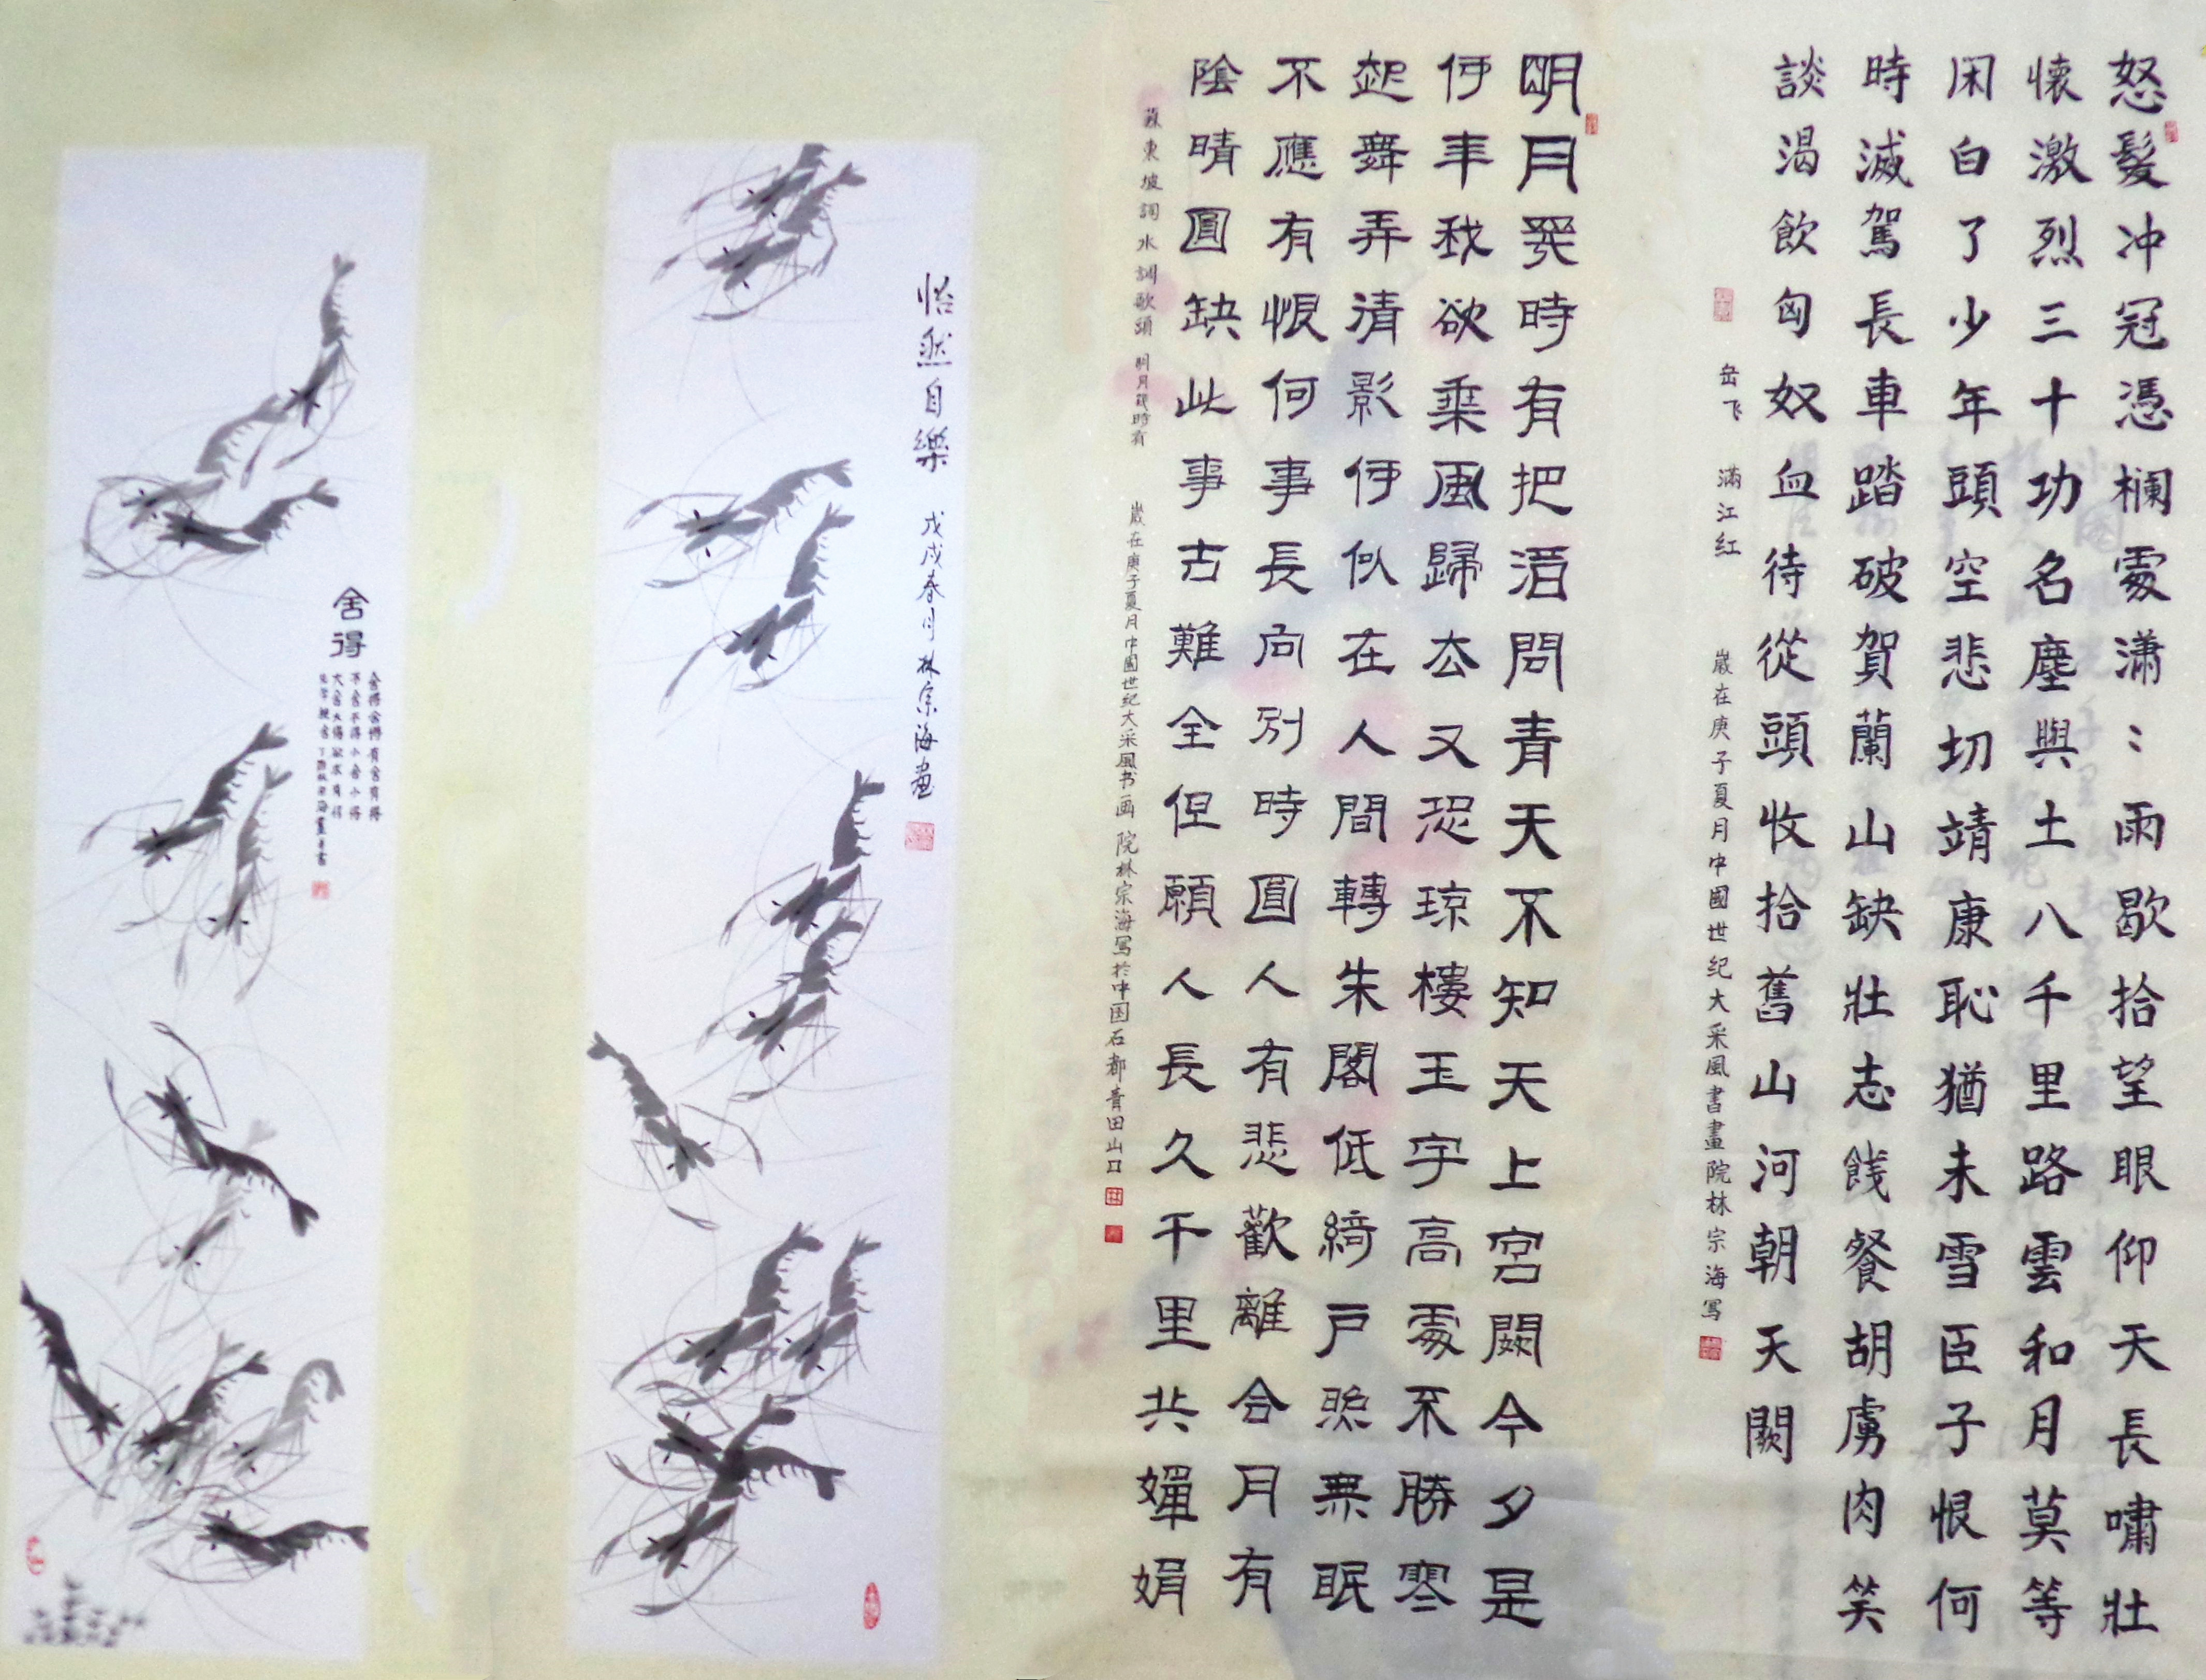 怒髮冲冠憑欄處瀟：雨歇拾望眼仰天長嘯壯
懷激烈三十功名塵與土八千里路雲和月莫等
闲白了少年頭空悲切靖康恥猶未雪臣子恨何
時滅駕長車踏破賀蘭山缺壯志餞餐胡虜肉笑
談渴飲匈奴血待從頭收拾舊山河朝天闕
岳飞 滿江红 歲在庚子夏月中國世纪大采風書畫院林宗海写
明月幾時有把酒問青天不知天上宮闕今夕是
何年我欲乘風歸去又恐琼樓玉宇高處不勝寒
起舞弄清影何似在人間轉朱閣低綺戶照無眠
不應有恨何事長向別時圓人有悲歡離合月有
陰晴圓缺此事古難全但願人長久千里共嬋娟
蘇東坡詞水調歌頭 明月幾時有 歲在庚子夏月中國世纪大采風书画院林宗海写於中国石都青田山口
怡然自樂 戊戌春月林宗海畫
舍得
舍得舍得有舍有得
不舍不得小舍小得